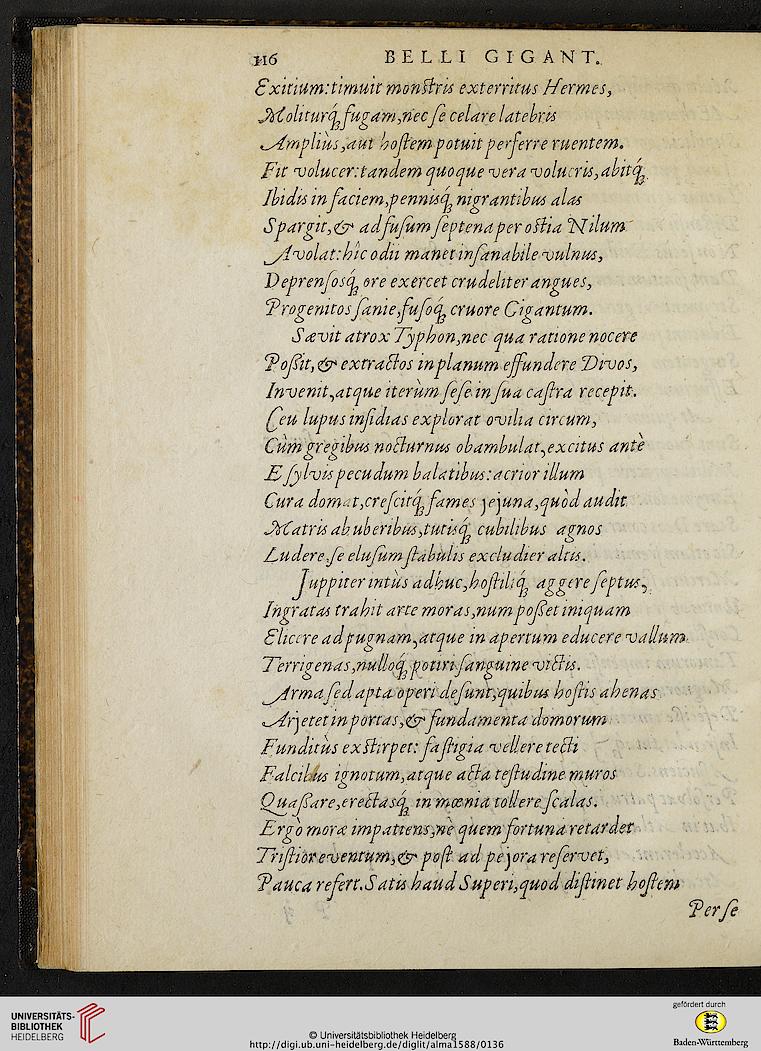 116 BELLI GIGANT.
Exitium: timuit monſtris exterritus Hermes,
Moliturq́; fugam, nec ſe celare latebris
Ampliùs, aut hoſtem potuit perferre ruentem.
Fit volucer: tandem quoque vera volucris, abitq́;
Ibidis in faciem, pennisq́; nigrantibus alas
Spargit, & ad fuſum ſeptena per oſtia Nilum
Avolat: hîc odii manet inſanabile vulnus,
Deprenſosq́; ore exercet crudeliter angues,
Progenitos ſanie, fuſoq́; cruore Gigantum.
Sævit atrox Typhon, nec qua ratione nocere
Poßit, & extractos in planum effundere Divos,
Invenit, atque iterùm ſeſe in ſua caſtra recepit.
Ceu lupus inſidias explorat ovilia circum,
Cùm gregibus nocturnus obambulat, excitus antè
E ſylvis pecudum balatibus: acrior illum
Cura domat, creſcitq́; fames jejuna, quòd audit
Matris ab uberibus, tutisq́; cubilibus agnos
Ludere, ſe eluſum ſtabulis excludier altis.
Juppiter intùs adhuc, hoſtiliq́; aggere ſeptus,
Ingratas trahit arte moras, num poßet iniquam
Elicere ad pugnam, atque in apertum educere vallum
Terrigenas, nulloq́; potiri ſanguine victis.
Arma ſed apta operi deſunt, quibus hoſtis ahenas
Arjetet in portas, & fundamenta domorum
Funditùs exſtirpet: faſtigia vellere tecti
Falcibus ignotum, atque acta teſtudine muros
Quaßare, erectasq́; in mœnia tollere ſcalas.
Ergò moræ impatiens, nè quem fortuna retardet
Triſtior eventum, & poſt ad pejora reſervet,
Pauca refert. Satis haud Superi, quod diſtinet hoſtem
Per ſe
UNIVERSITÄTS-
BIBLIOTHEK
HEIDELBERG
© Universitätsbibliothek Heidelberg
http://digi.ub.uni-heidelberg.de/diglit/alma1588/0136
gefördert durch
Baden-Württemberg